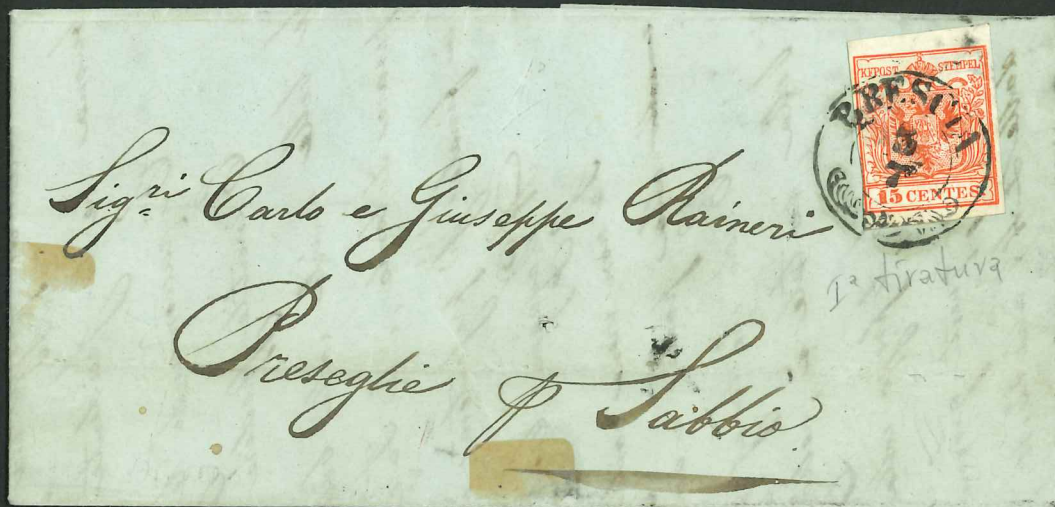 KKPOST STEMPEL
BRESCIA
15 CENTES
Sigri Carlo e Giuseppe Raineri
Ia tiratura
Preseglie p Sabbio